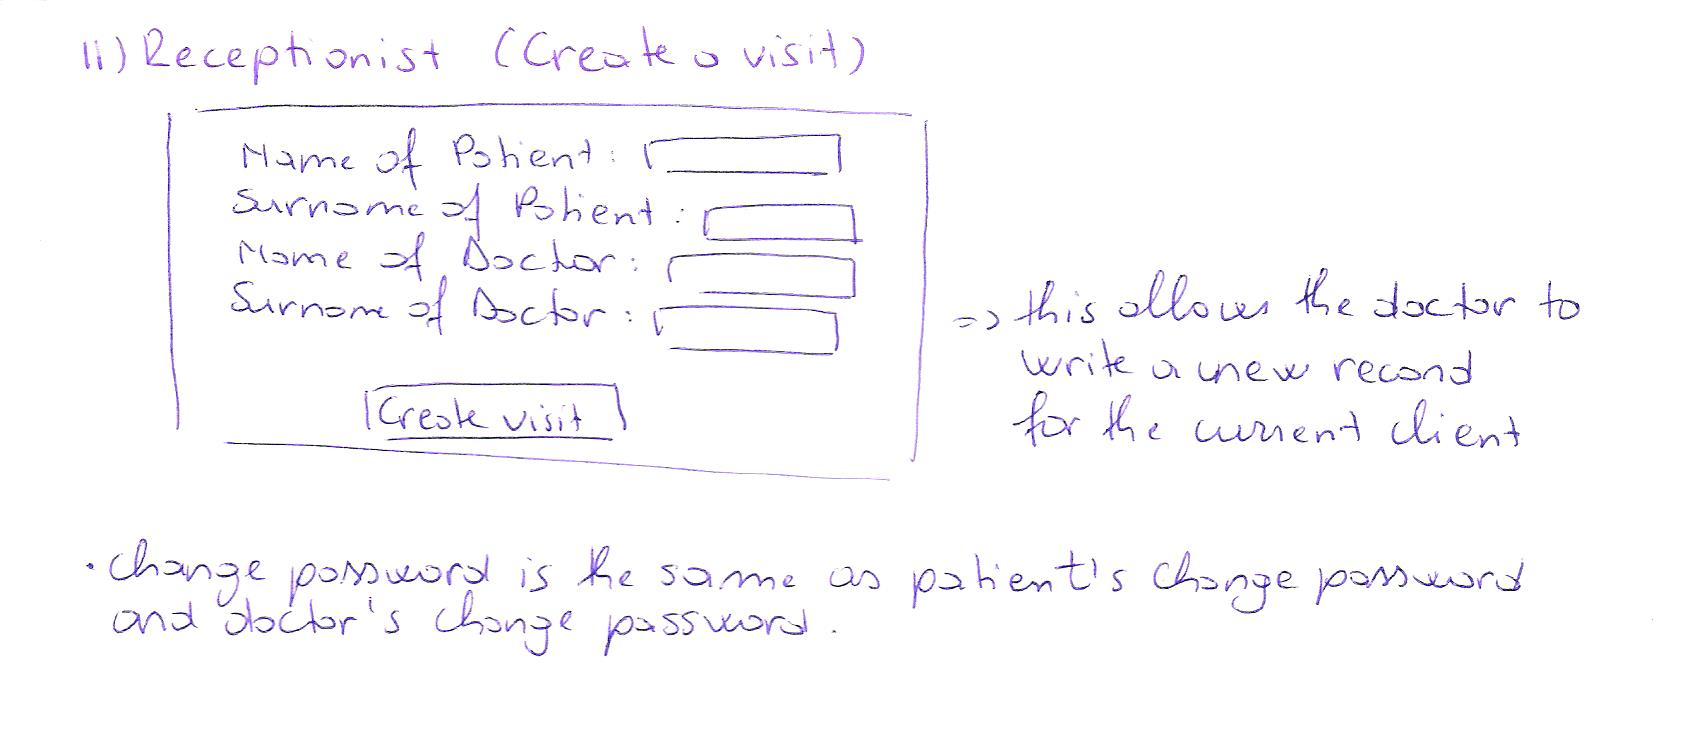 11) Receptionist (Create a visit)
Name of Patient:
Surname of Patient:
Name of Doctor:
Surname of Doctor:
Create visit
=> this allows the doctor to
write a new record
for the current client
• Change password is the same as patient's change password
and doctor's change password.